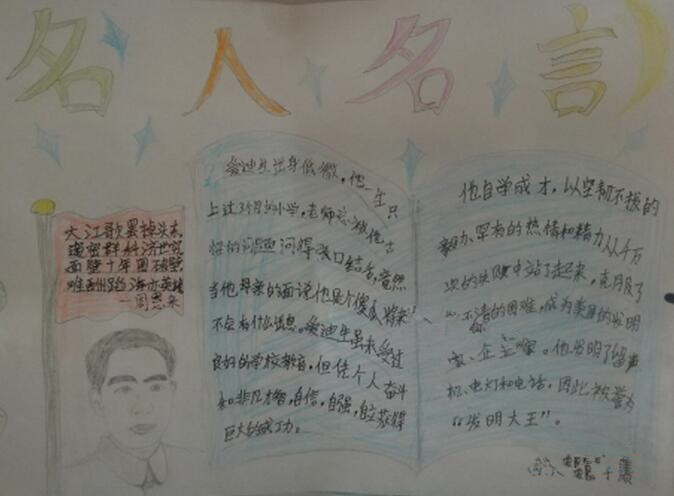 名人名言
大江歌罢掉头东
邃密群科济世穷
面壁十年图破壁
难酬蹈海亦英雄
—周恩来
爱迪生出身低微，他一生只
上过3个月的小学，老师总被他古
怪的问题问得张口结舌，竟然
当他母亲的面说他是个傻瓜，将来
不会有什么出息。爱迪生虽未受过
良好的学校教育，但凭个人奋斗
和非凡才智，自信，自强，自立获得
巨大的成功。
他自学成才，以坚韧不拔的
毅力、罕有的热情和精力从千万
次的失败中站了起来，克服了
数不清的困难，成为美国的发明
家、企业家。他发明了留声
机、电灯和电话，因此被誉为
“发明大王”。